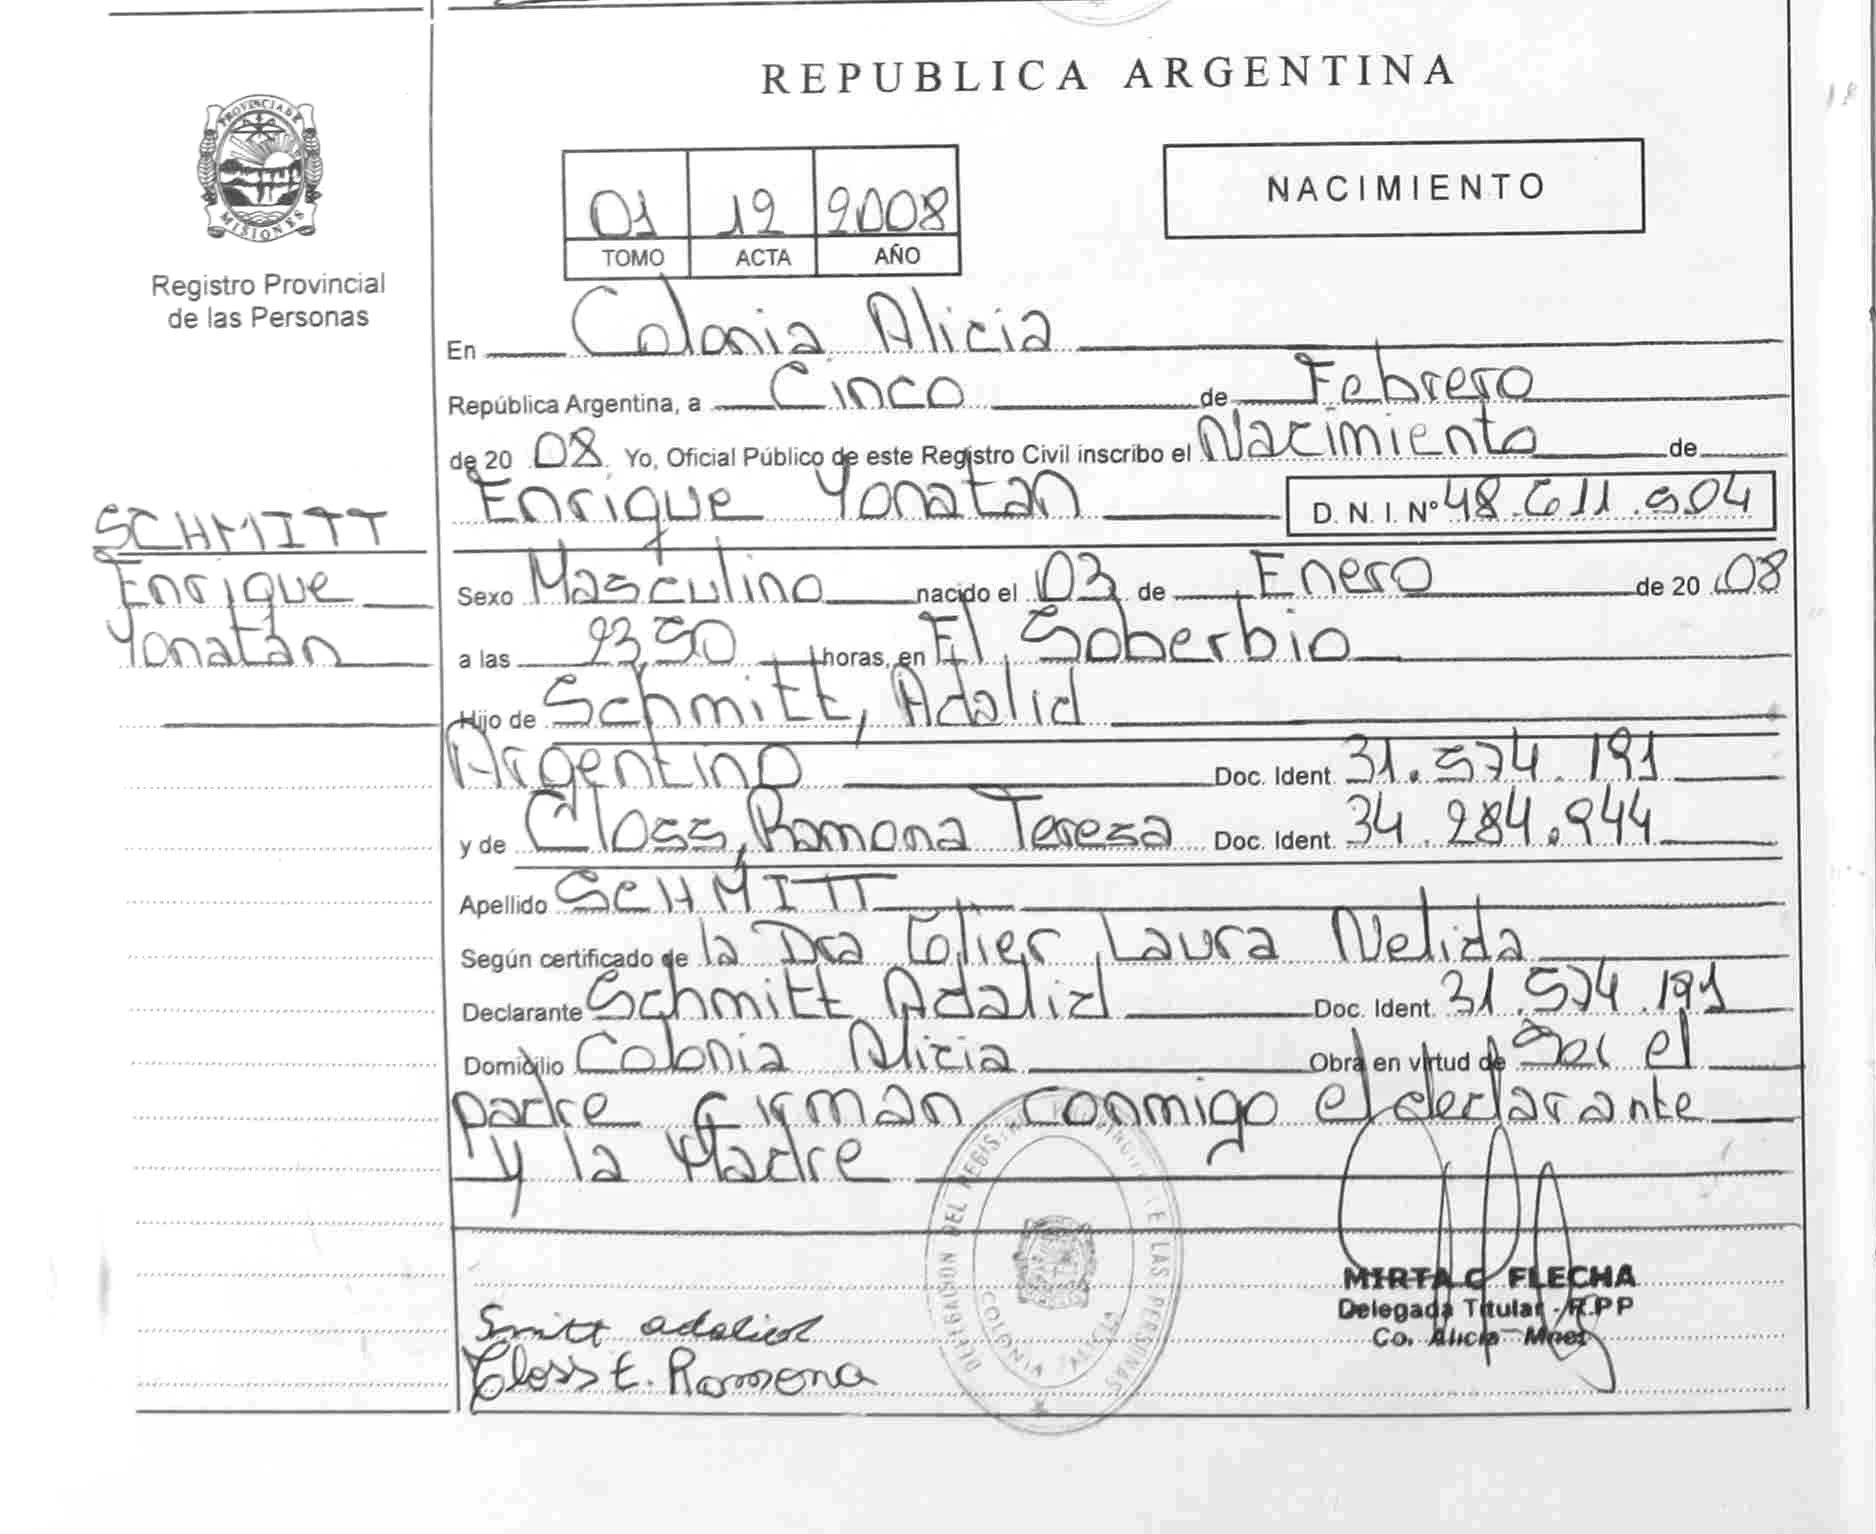 REPUBLICA ARGENTINA
PROVINCIA DE MISIONES
Registro Provincial
de las Personas
NACIMIENTO
01 12 2008
TOMO ACTA AÑO
En Colonia Alicia
República Argentina, a Cinco de Febrero
de 20 08 Yo, Oficial Público de este Registro Civil inscribo el Nacimiento de
Enrique Yonatan D. N. I. Nº 48.611.504
SCHMITT
Enrique
Yonatan
Sexo Masculino nacido el 03 de Enero de 20 08
a las 23,50 horas, en El Soberbio
Hijo de Schmitt, Adalid
Argentino Doc. Ident. 31.574.191
y de Closs, Ramona Teresa Doc. Ident. 34.284.944
Apellido SCHMITT
Según certificado de la Dra Colier Laura Nelida
Declarante Schmitt Adalid Doc. Ident. 31.574.191
Domicilio Colonia Alicia Obra en virtud de Ser el
padre Firman conmigo el declarante
y la Madre
DELEGACION DEL REGISTRO PROVINCIAL DE LAS PERSONAS
COLONIA ALICIA
MIRTA C FLECHA
Delegada Titular - R.P.P
Co. Alicia - Mnes
Smitt adalid
Closs t. Ramona